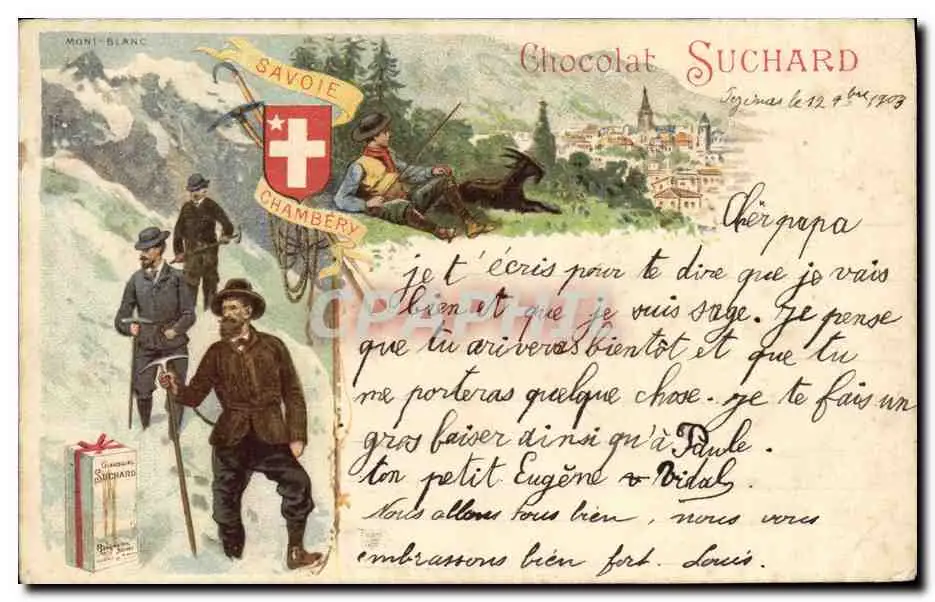 MONT-BLANC
SAVOIE
CHAMBÉRY
Chocolat SUCHARD
le 12 9bre 1903
Chèr papa
je t'écris pour te dire que je vais
bien et que je suis sage. Je pense
que tu ariveras bientôt et que tu
me porteras quelque chose. Je te fais un
gros baiser ainsi qu'à Paule.
ton petit Eugène Vidal.
Nous allons tous bien, nous vous
embrassons bien fort. Louis.
SUCHARD
CPAPHIL